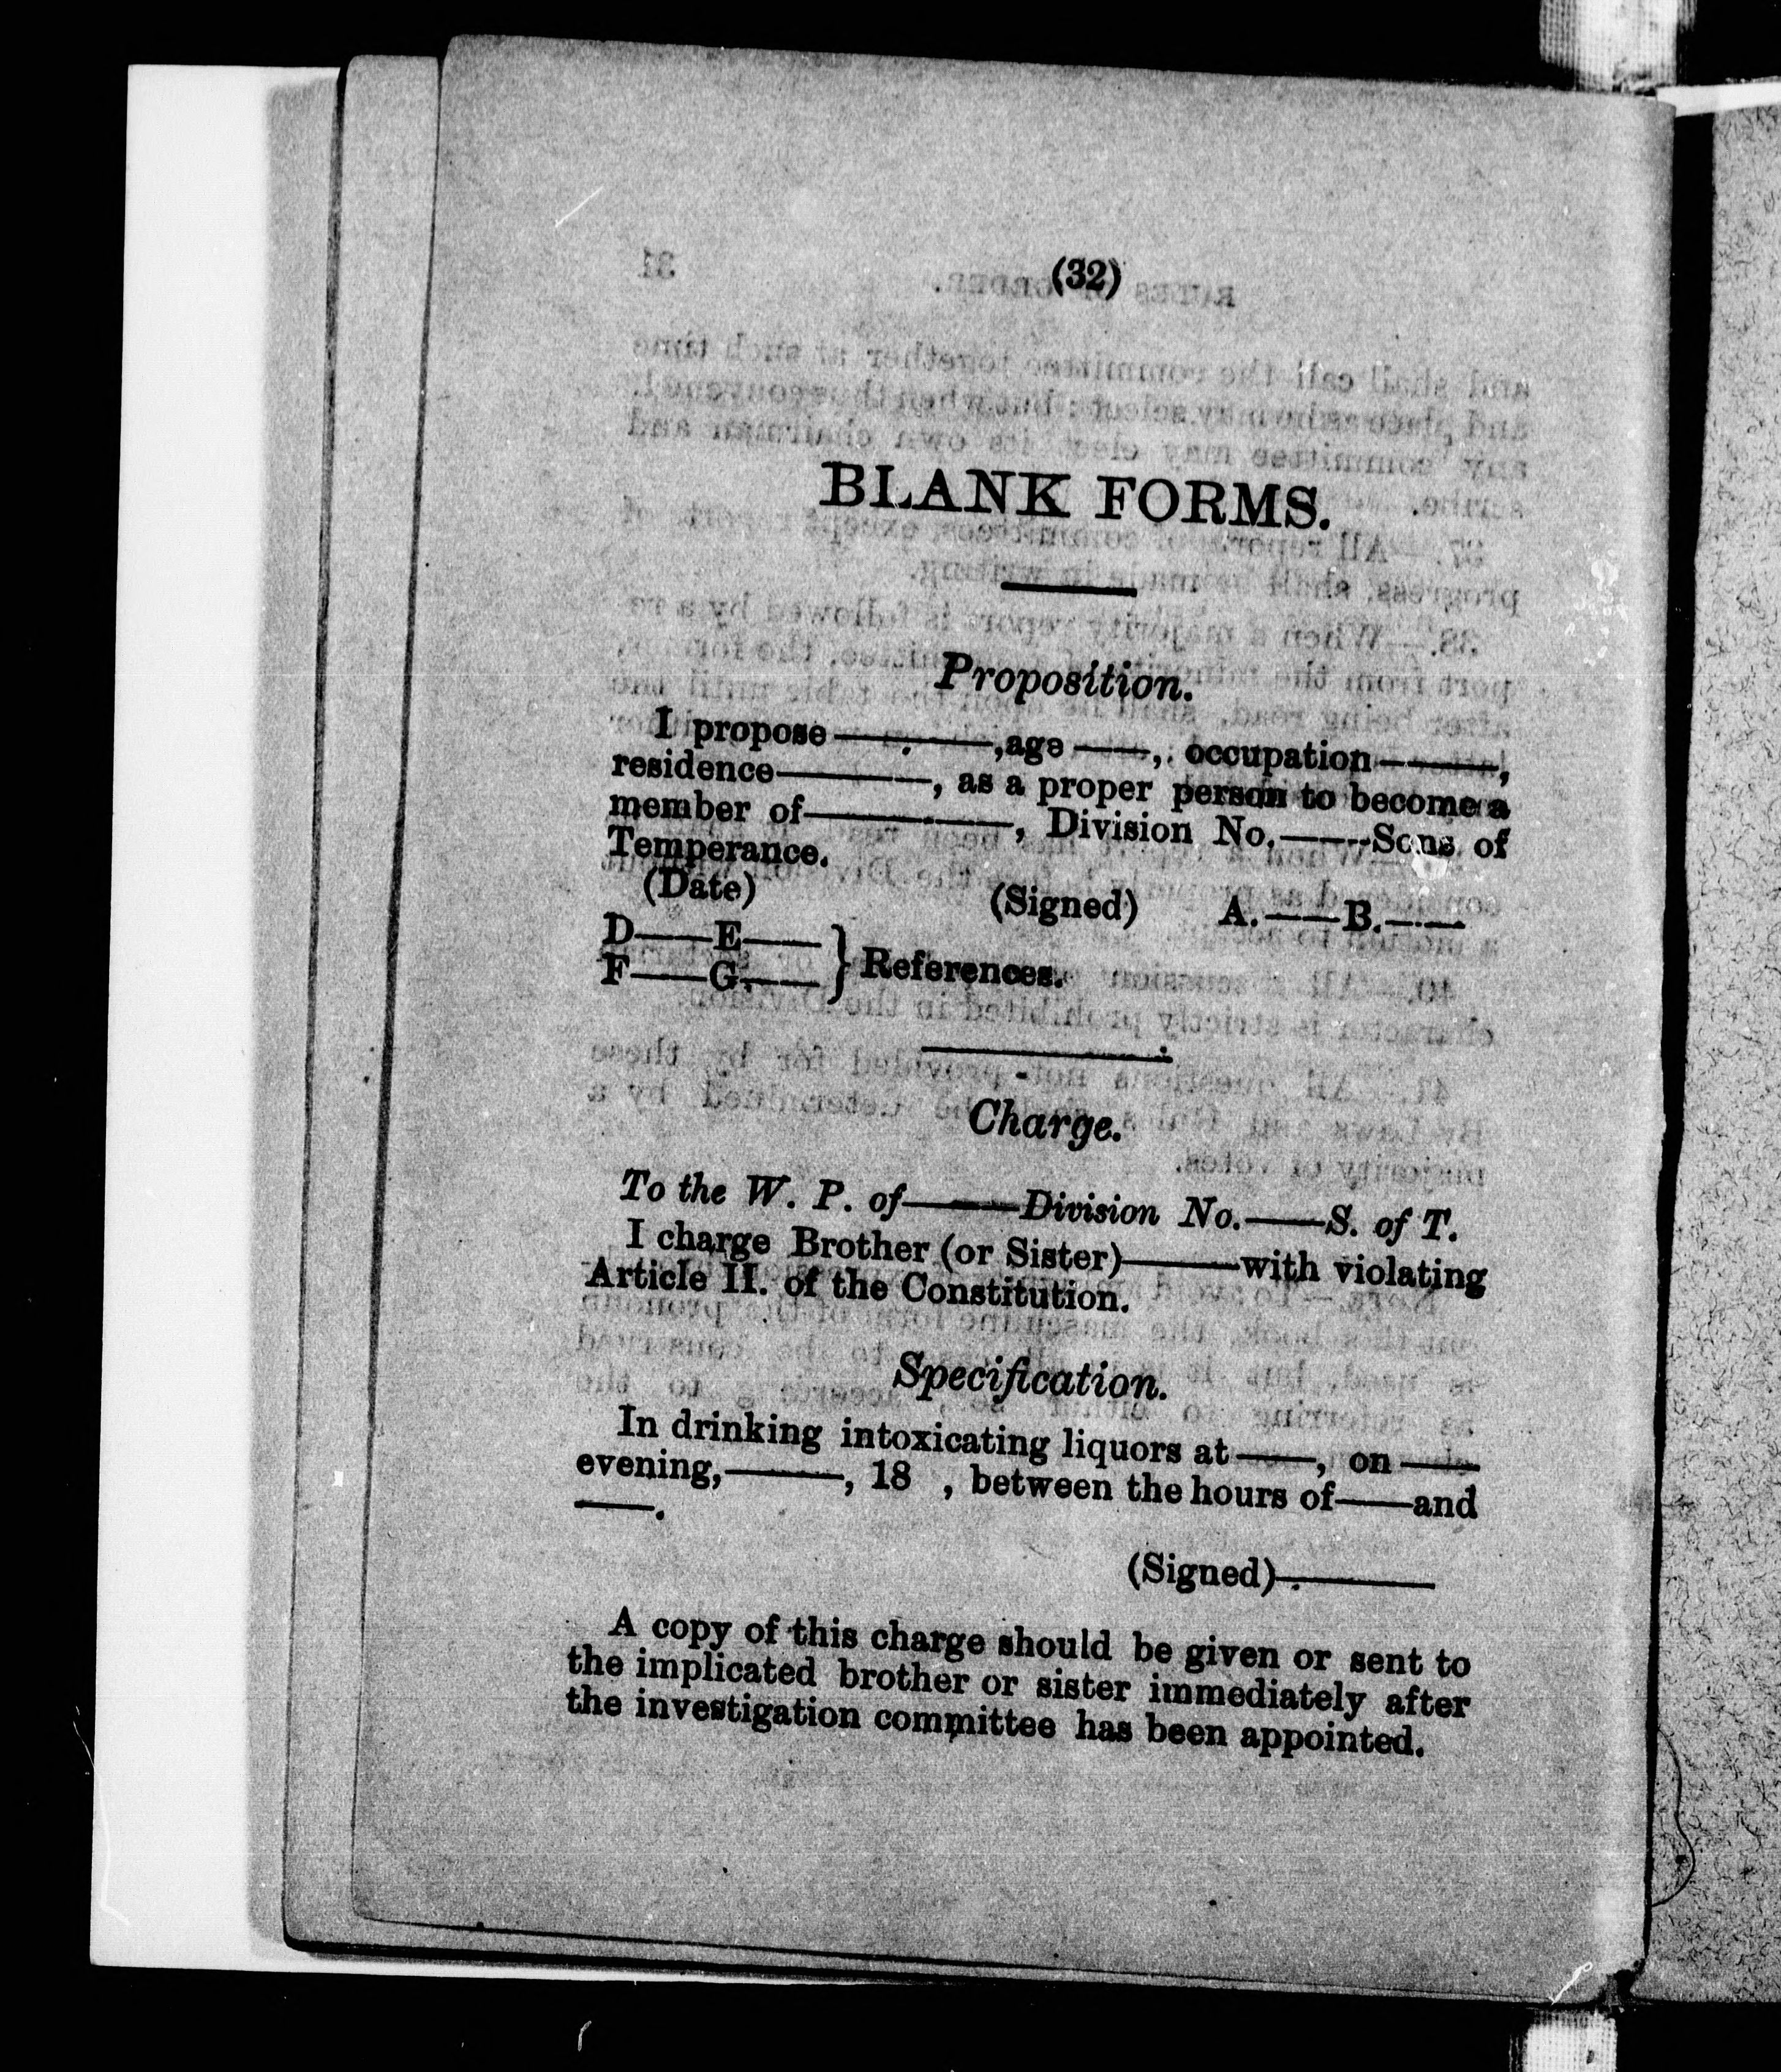 (32)
BLANK FORMS.
Proposition.
I propose ———, age ——, occupation ———,
residence ———, as a proper person to become a
member of ————, Division No. ——— Sons of
Temperance.
(Date) (Signed) A. —— B. ——
D—— E——
F—— G. —— } References.
Charge.
To the W. P. of ——— Division No. —— S. of T.
I charge Brother (or Sister) ——— with violating
Article II. of the Constitution.
Specification.
In drinking intoxicating liquors at ——, on ——
evening, ———, 18 , between the hours of —— and
——.
(Signed) ————
A copy of this charge should be given or sent to
the implicated brother or sister immediately after
the investigation committee has been appointed.